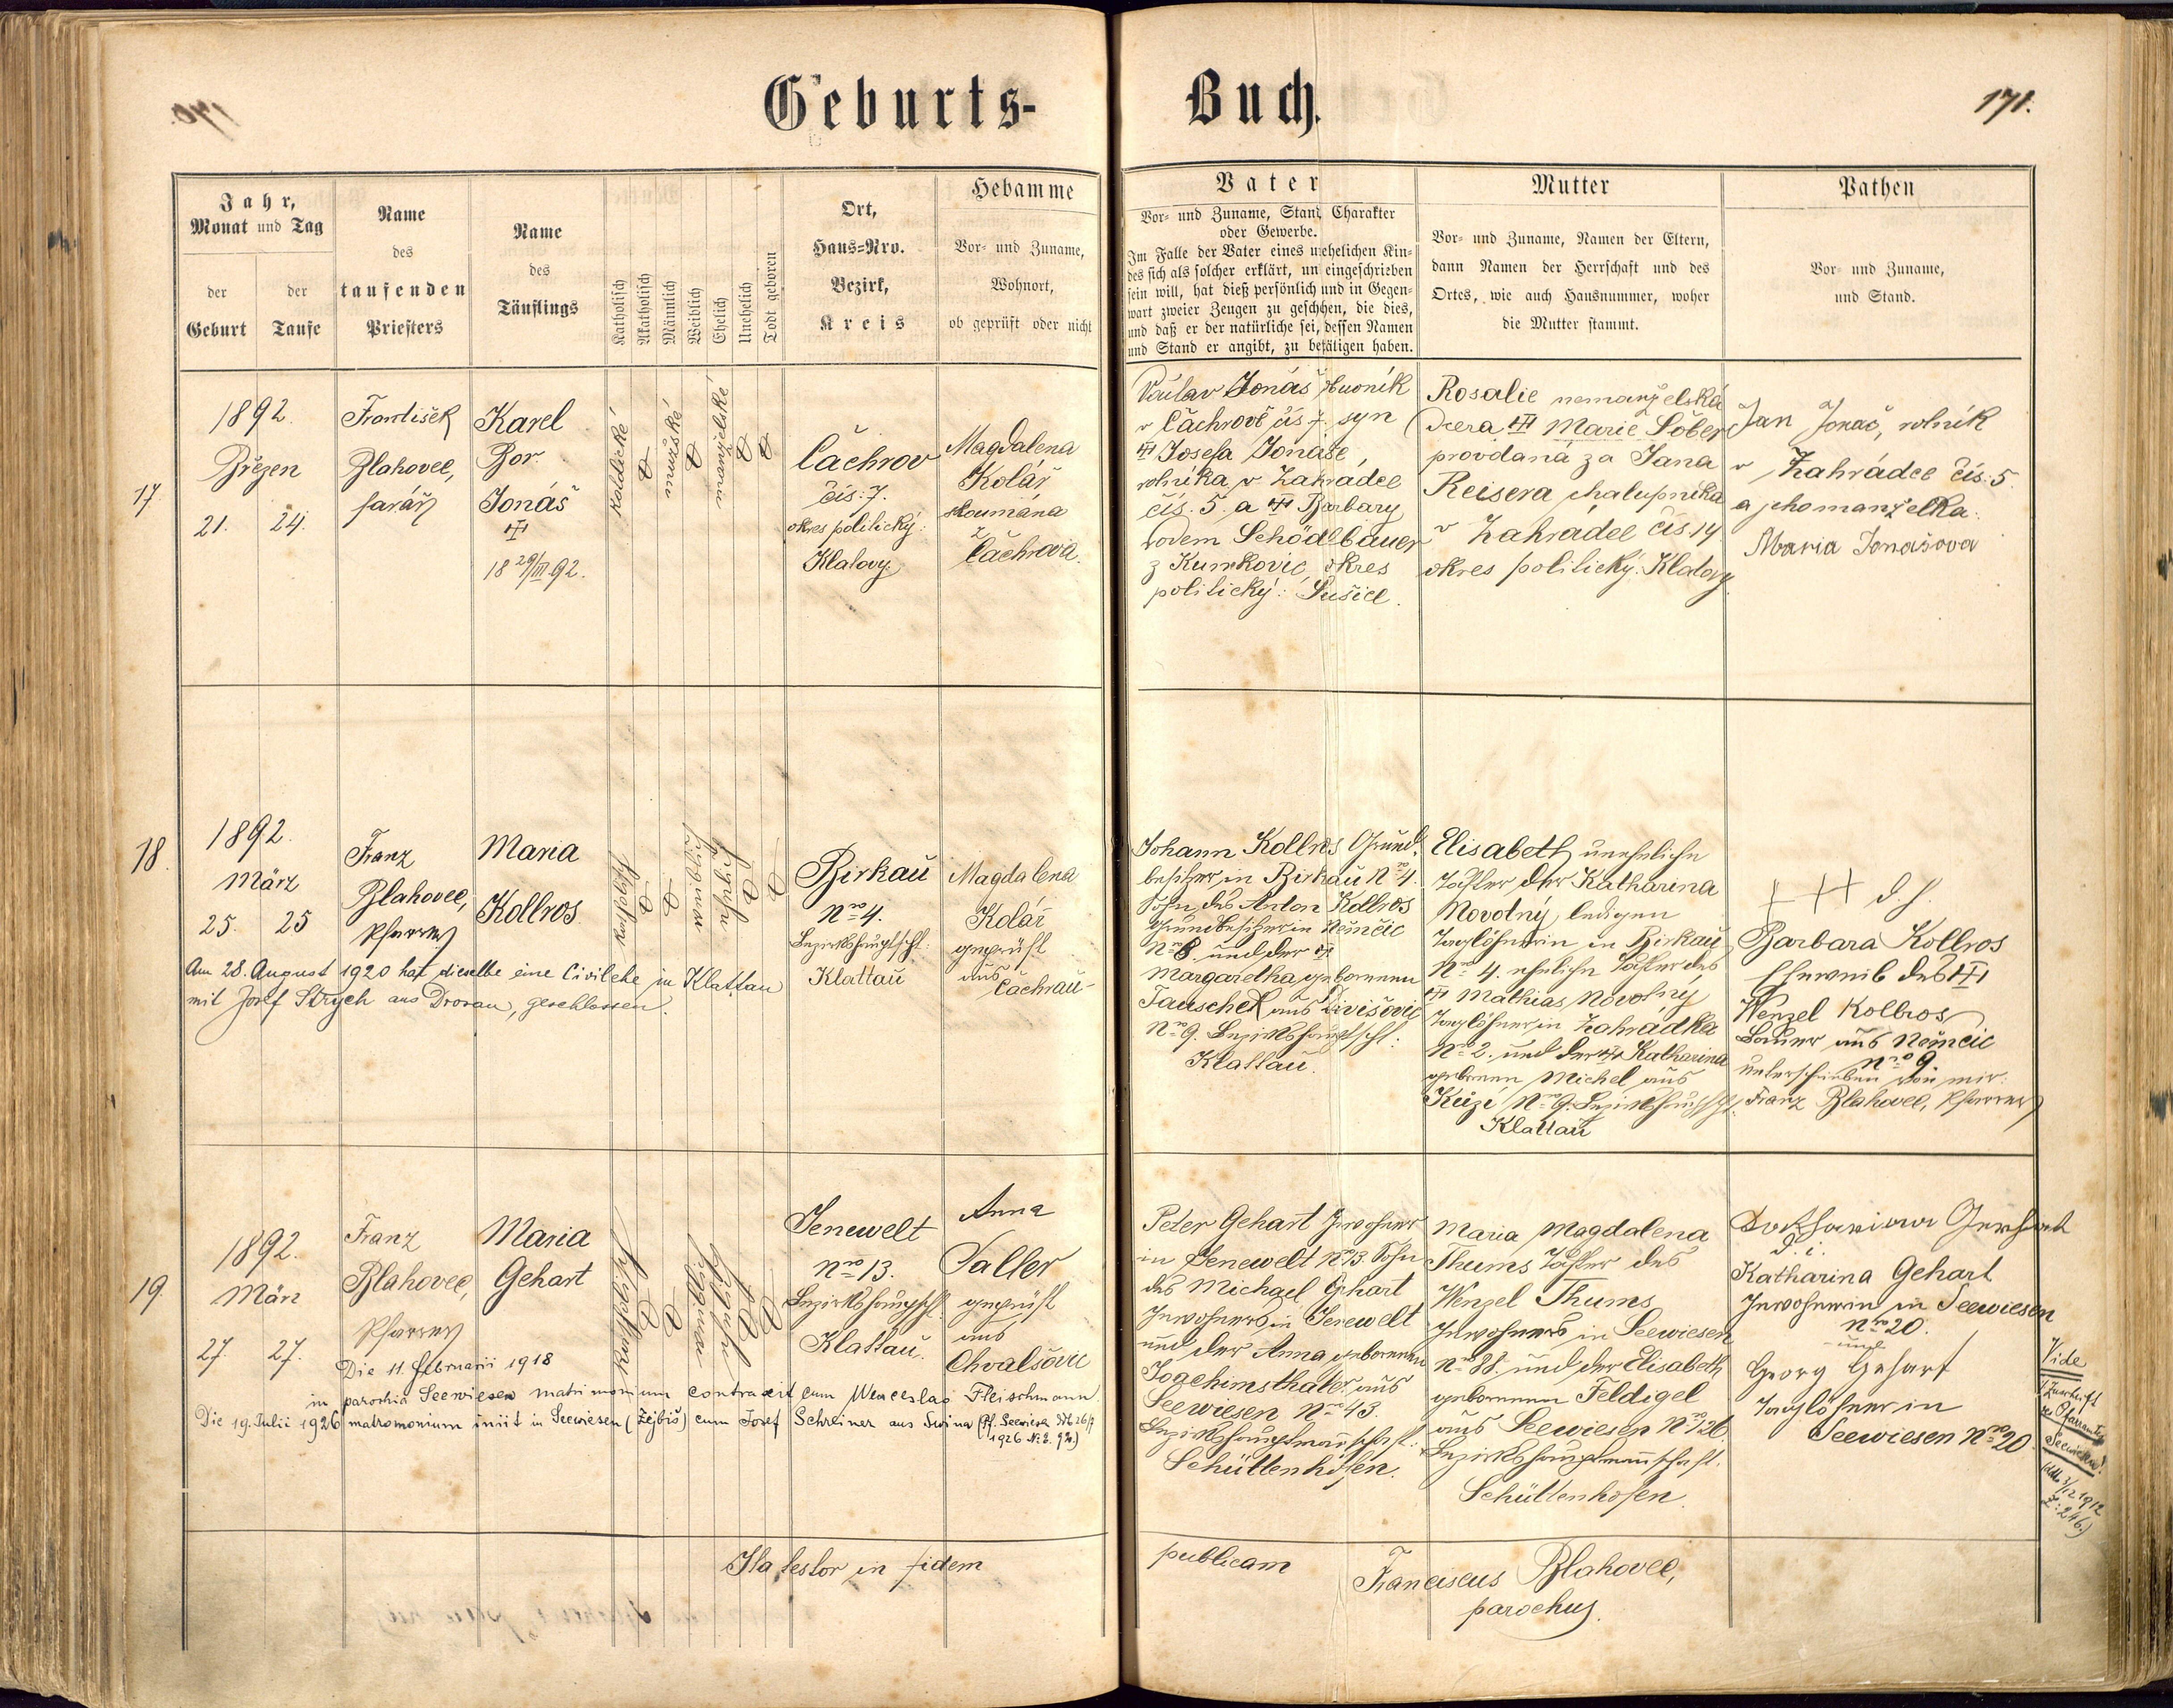 Geburts-
Buch.
171.
Jahr,
Monat und Tag
der
Geburt
der
Taufe
Name
des
taufenden
Priesters
Name
des
Täuflings
Katholisch
Akatholisch
Männlich
Weiblich
Ehelich
Unehelich
Todt geboren
Ort,
Haus-Nro.
Bezirk,
Kreis
Hebamme
Vor- und Zuname,
Wohnort,
ob geprüft oder nicht
Vater
Vor- und Zuname, Stand, Charakter
oder Gewerbe.
Im Falle der Vater eines unehelichen Kin-
des sich als solcher erklärt, und eingeschrieben
sein will, hat dieß persönlich und in Gegen-
wart zweier Zeugen zu geschehen, die dies,
und daß er der natürliche sei, dessen Namen
und Stand er angibt, zu bestätigen haben.
Mutter
Vor- und Zuname, Namen der Eltern,
dann Namen der Herrschaft und des
Ortes, wie auch Hausnummer, woher
die Mutter stammt.
Pathen
Vor- und Zuname,
und Stand.
17.
1892
Březen
21. 24.
František
Blahovec,
farář
Karel
Bor.
Jonáš
18 29/III 92.
katolické
mužské
manželské
Čachrov
čís: 7.
okres politický:
Klatovy.
Magdalena
Kolář
zkoumána
z
Čachrova.
Václav Jonáš
v Čachrově čís 7. syn
Josefa Jonáše,
rolníka v Zahrádce
čís. 5. a Barbary
rodem Schödlbauer
z Kunkovic, okres
politický: Sušice.
Rosalie nemanželská
dcera Marie Šober
provdaná za Jana
Reisera chalupníka
v Zahrádce čís 14
okres politický: Klatovy.
Jan Jonáš, rolník
v Zahrádce čís: 5.
a jeho manželka:
Maria Jonášova
18
1892.
März
25. 25
Franz
Blahovec,
Pfarrer
Maria
Kollros
katholisch
Birkau
Nro 4.
Bezirkshauptsch:
Klattau
Magdalena
Kolář
geprüft
aus
Čachrau
Am 28. August 1920 hat dieselbe eine Civilehe in Klattau
mit Josef Strych aus Drosau, geschlossen.
Johann Kollros Grund-
besitzer in Birkau Nro 4.
Sohn des Anton Kollros
Grundbesitzer in Němčic
Nro 8. und der
Margaretha geborenen
Tauschek aus Divišovic
Nro 9. Bezirkshauptsch:
Klattau.
Elisabeth uneheliche
Tochter der Katharina
Novotný, ledigen
Taglöhnerin in Birkau
Nro 4. eheliche Tochter des
Mathias Novotny
Taglöhner in Zahrádka
Nro 2. und der Katharina
geborenen Michel aus
Nro 9. Bezirkshauptsch:
Klattau
+++ d. h.
Barbara Kollros
Eheweib des
Wenzel Kollros
Bauer aus Němčic
Nro 9.
unterschrieben von mir:
Franz Blahovec, Pfarrer
19
1892.
März
27. 27.
Franz
Blahovec,
Pfarrer
Maria
Gehart
katholisch
Jenewelt
Nro 13.
Bezirkshauptsch:
Klattau.
Anna
Saller
geprüft
aus
Chvalšovic
Die 11. februarii 1918
in parochia Seewiesen matrimonium contraxit cum Wenceslao Fleischmann.
Die 19. Julii 1926 matrimonium iniit in Seewiesen (Žejbiš) cum Josef Schreiner aus Swina (Pf. Seewiesen
1926 Nr. E. 92.)
Peter Gehart Inwohner
in Jenewelt Nro 13. Sohn
des Michael Gehart
Inwohners in Jenewelt
und der Anna geborenen
Joachimsthaler aus
Seewiesen Nro 43.
Bezirkshauptmannschaft:
Schüttenhofen.
Maria Magdalena
Thums Tochter des
Wenzel Thums
Inwohners in Seewiesen
Nro 38. und der Elisabeth
geborenen Feldigel
aus Seewiesen Nro 126
Bezirkshauptmannschaft.
Schüttenhofen.
d. i.
Katharina Gehart
Inwohnerin in Seewiesen
Nro 20.
und
Georg Gehart
Taglöhner in
Seewiesen Nro 20
Vide
Zuschrift
des Pfarramtes
Seewiesen!
1912
Z: 246.)
Ita testor in fidem
publicam
Franciscus Blahovec,
parochus.